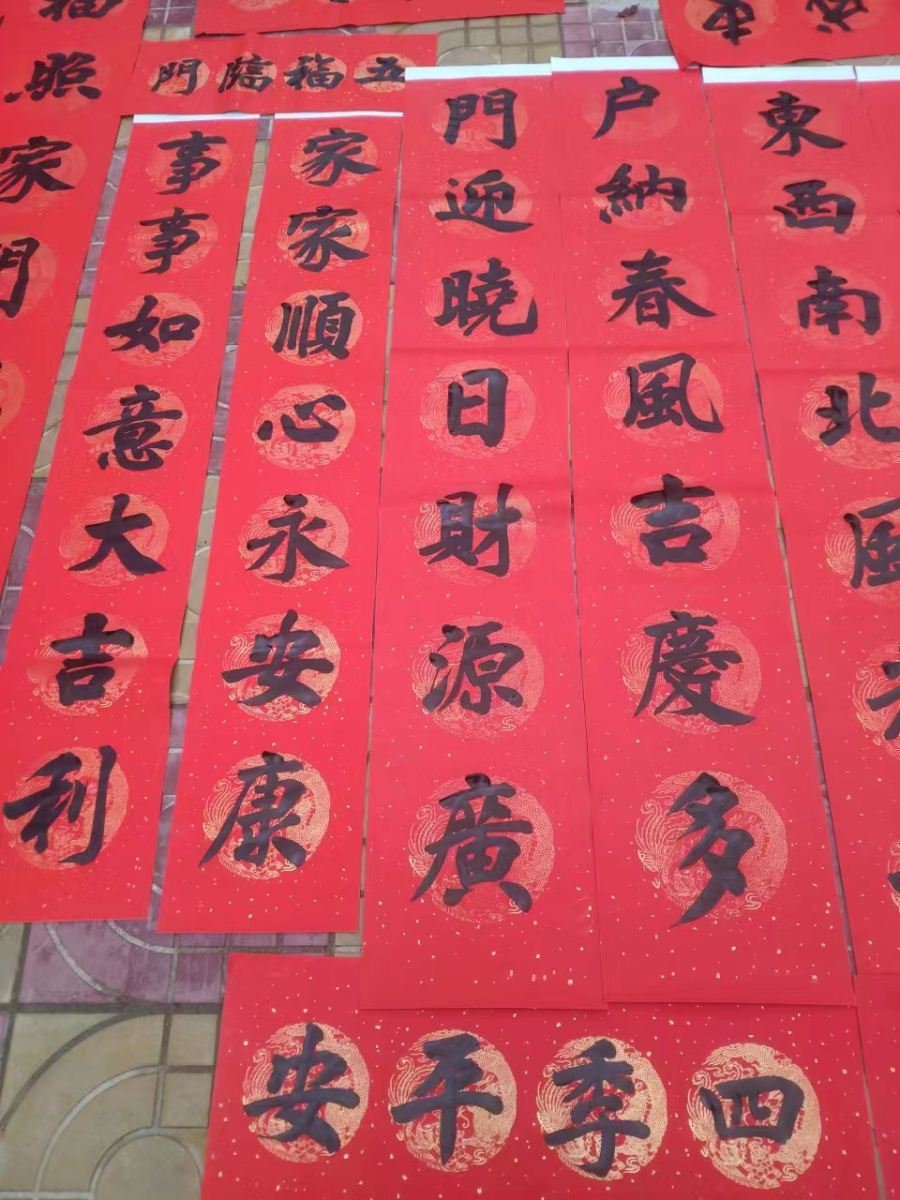 五福臨門
東西南北風
户納春風吉慶多
門迎曉日財源廣
家家順心永安康
事事如意大吉利
照家門
四季平安